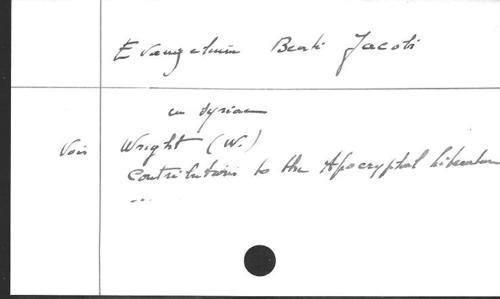 Evangelium Beati Jacobi
en syriaque
Voir Wright (W.)
Contributions to the Apocryphal literature
...